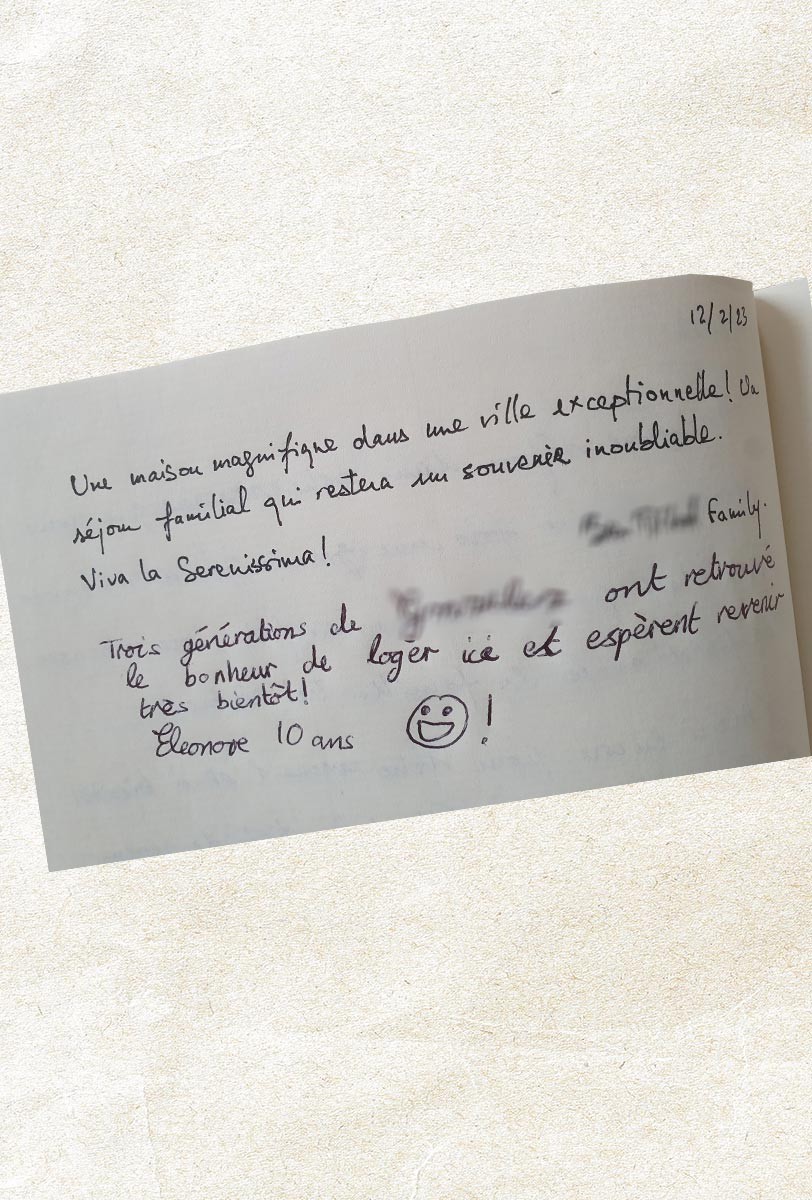 12/2/23
Une maison magnifique dans une ville exceptionnelle! Un
séjour familial qui restera un souvenir inoubliable.
Viva la Serenissima!
Family.
Trois générations de ont retrouvé
le bonheur de loger ici et espèrent revenir
très bientôt!
Eleonore 10 ans !